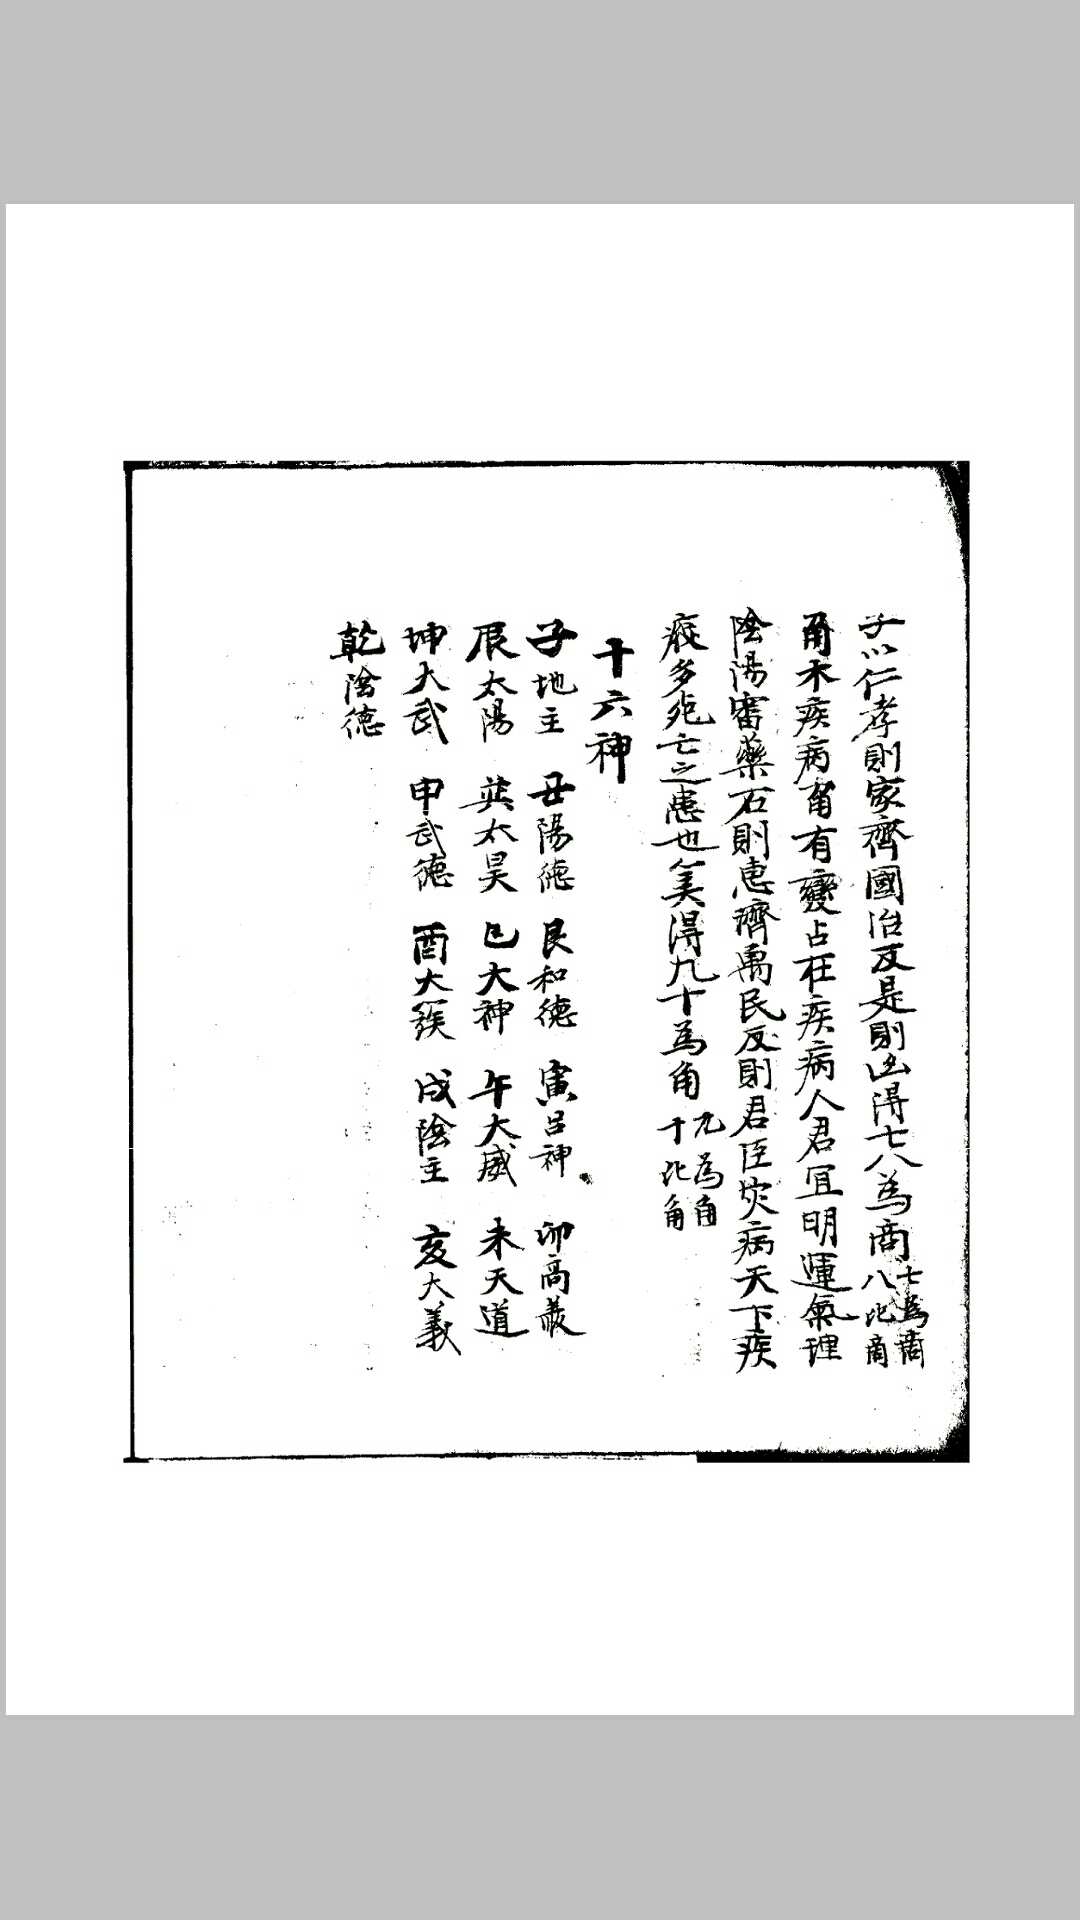 子以仁孝則家齊國治反是則凶得七八為商七為商八比商
角木疾病角有變占在疾病人君宜明運氣理
陰陽審藥石則惠濟萬民反則君臣灾病天下疾
疫多死亡之患也筭得九十為角九為角十比角
十六神
子地主 丑陽德 艮和德 寅呂神 卯高義
辰太陽 巽太昊 巳大神 午大威 未天道
坤大武 申武德 酉大簇 戌陰主 亥大義
乾陰德